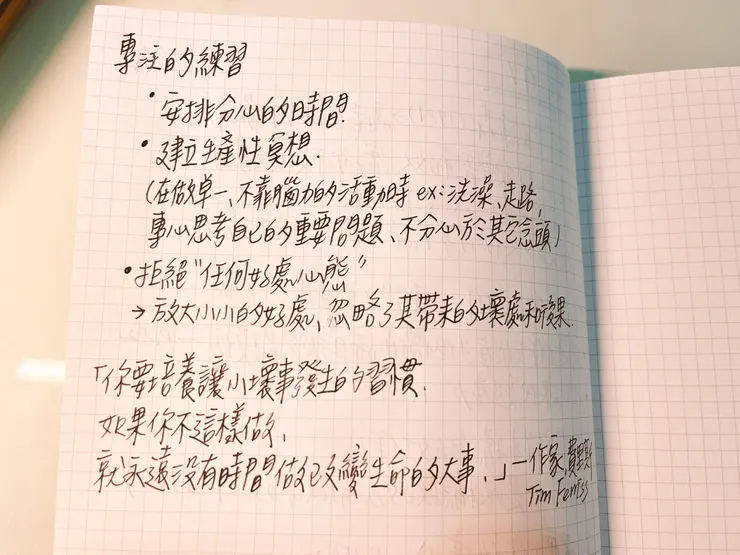 專注的練習
• 安排分心的時間.
• 建立生產性冥想.
(在做單一、不靠腦力的活動時 ex:洗澡、走路,
專心思考自己的重要問題、不分心於其它念頭)
• 拒絕"任何好處心態"
→ 放大小小的好處、忽略了其帶來的壞處和後果.
「你要培養讓小壞事發生的習慣.
如果你不這樣做、
就永遠沒有時間做改變生命的大事、」—作家,費里斯
Tim Ferriss